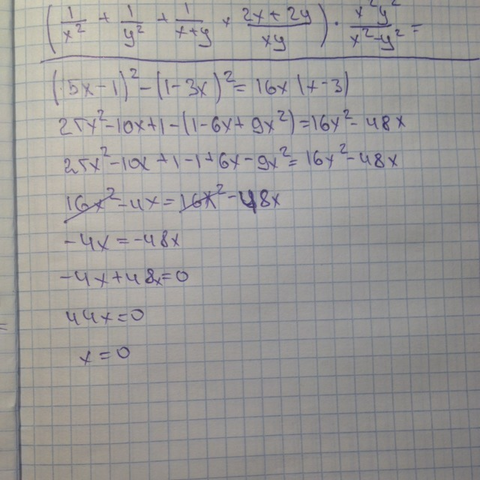 (1/x² + 1/y² + 1/x+y × 2x+2y/xy) · x²y²/x²-y² =
(5x-1)² - (1-3x)² = 16x(x-3)
25x²-10x+1-(1-6x+9x²)=16x²-48x
25x²-10x+1-1+6x-9x²=16x²-48x
16x²-4x=16x²-48x
-4x=-48x
-4x+48x=0
44x=0
x=0